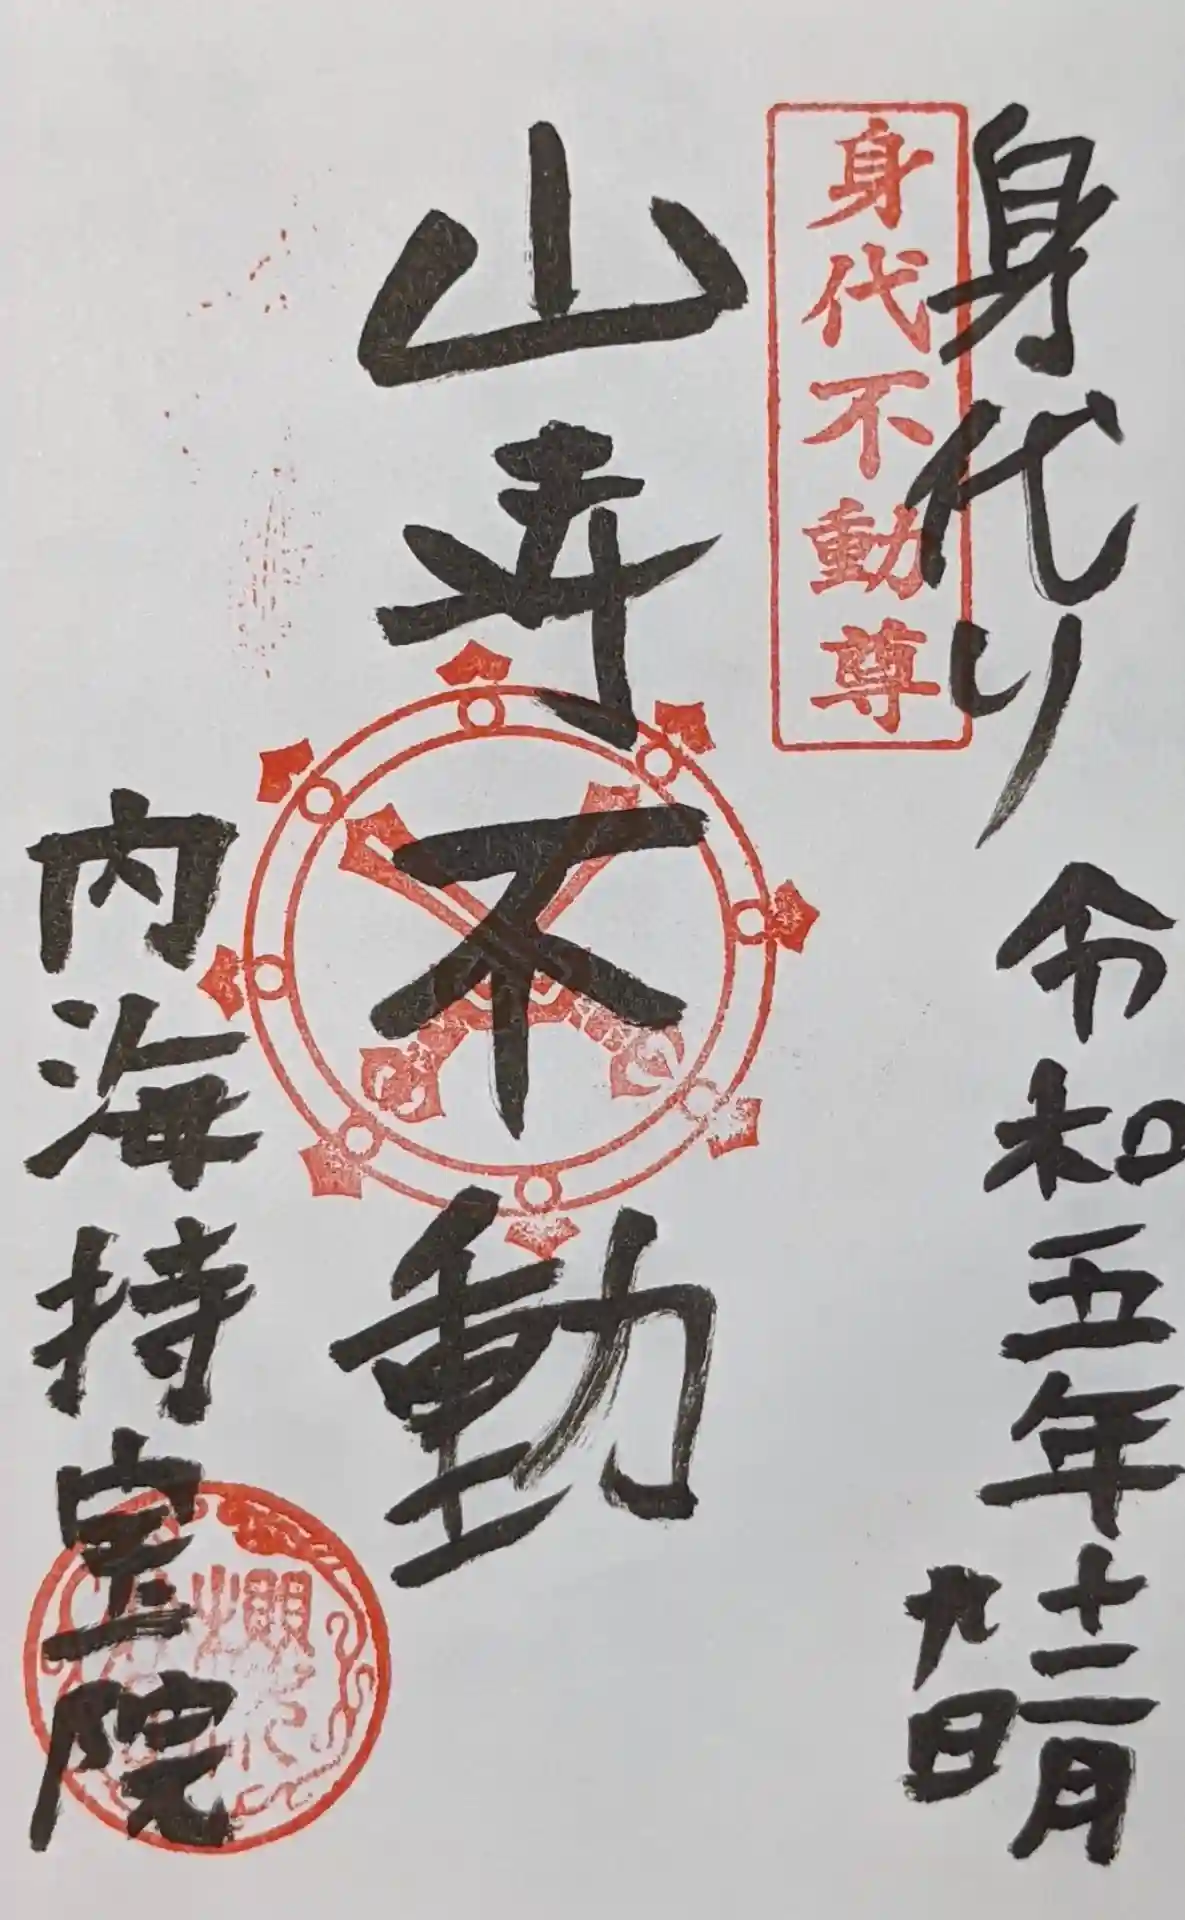 身代り
令和五年十二月
九日
身代不動尊
山寺不動
内海持宝院